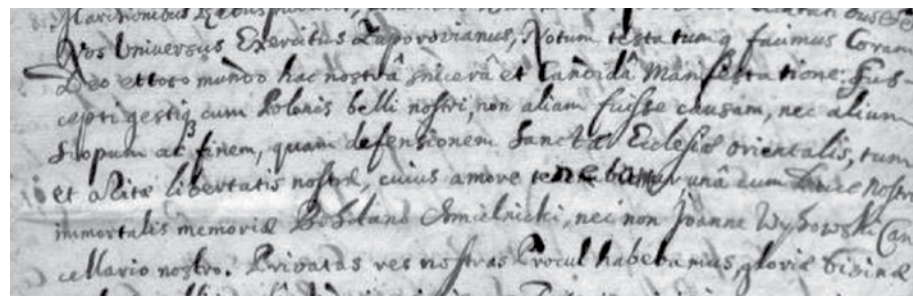 Nos Universus Exercitus Zaporovianus, Notum testatumq facimus Coram
Deo et toto mundo hac nostrâ sincerâ et Candidâ Manifestatione: Sus-
cepti gestiq cum Polonis belli nostri, non aliam fuisse causam, nec alium
Scopum ac finem, quam defensionem Sanctæ Ecclesiæ orientalis, tum
et avitæ libertatis nostræ, cuius amore tenebamur, unâ cum Duce nostro
immortalis memoriæ Bohdano Chmielnicki, nec non Joanne Wyhowski Can
cellario nostro. Privatas res nostras Procul habebamus, gloriæ Divinæ